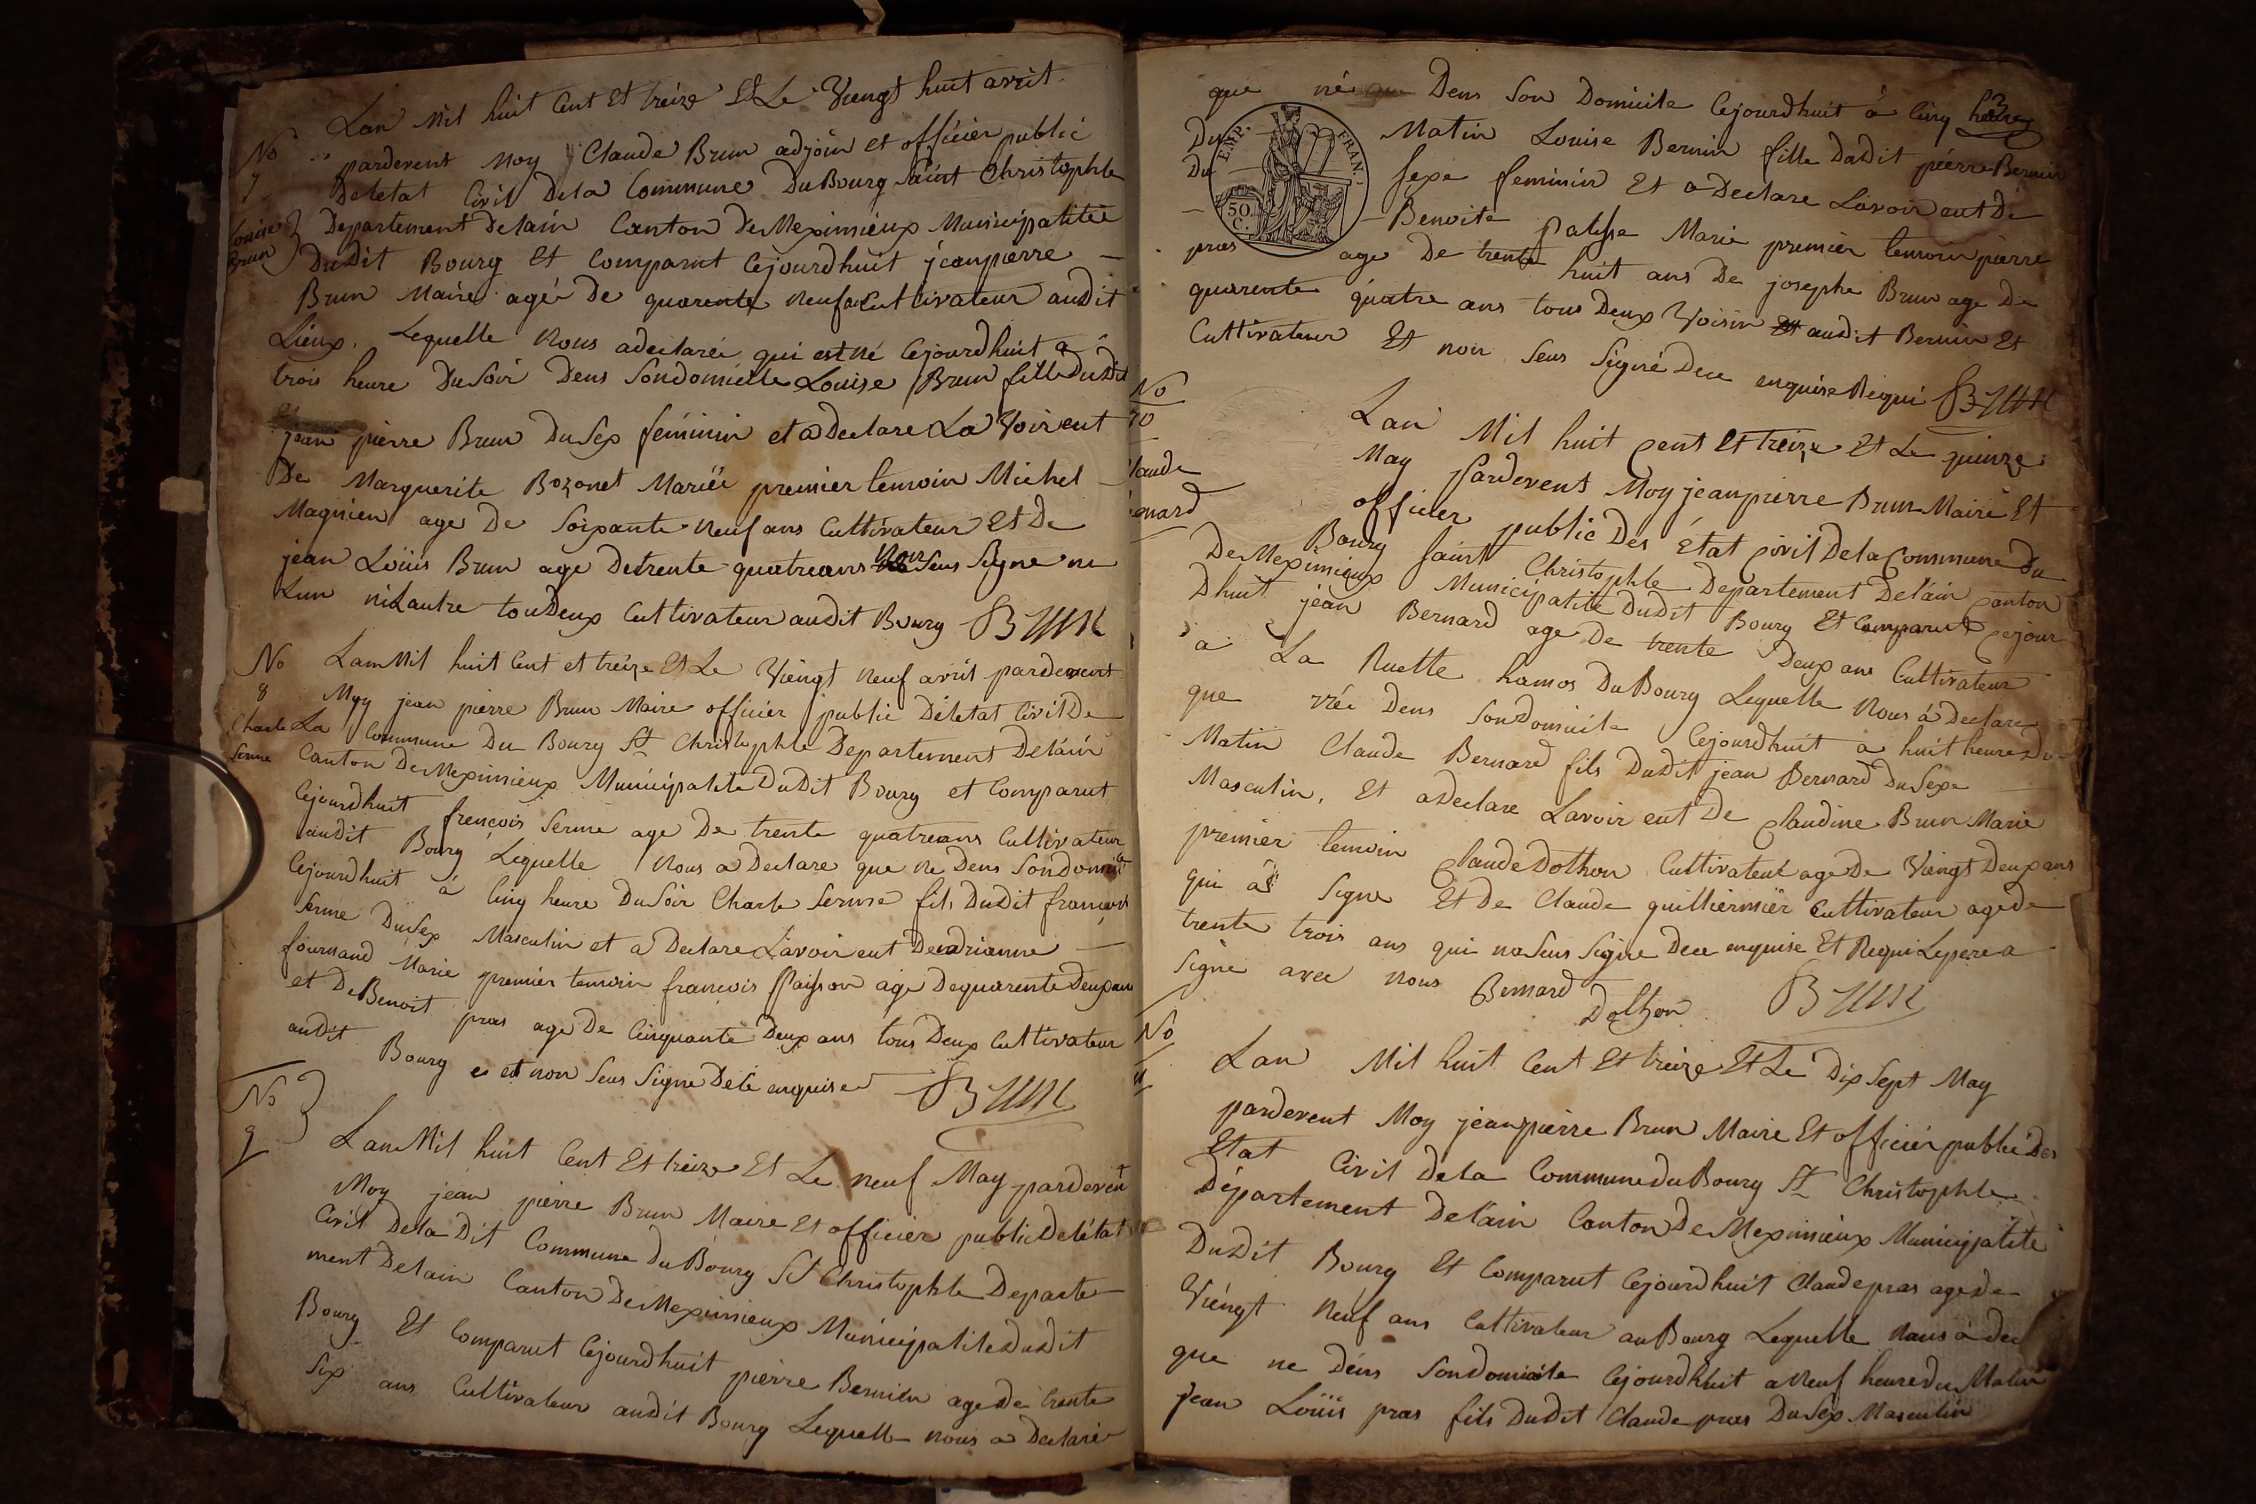 Lan Mil huit Cent Et treize Et Le Viengt huit avril
No
7
pardevent Moy Claude Brun adjoin et officier public
Deletat Civil Dela Commune Du Bourg saint Christophle
Louise
Brun
Departement Delain Canton De Meximieux Municipalitée
DuDit Bourg Et Comparut Cejourdhuit jeanpierre
Brun Maire agée de quarente neuf Cultivateur audit
Lieux. Lequelle Nous adeclarée qui est né Cejourdhuit a
trois heure Du Soir Dens Sondomicille Louise Brun fille DuDit
jean pierre Brun Du Sex féminin et a Declare La Voir eut
De Marguerite Bozonet Mariée premier temoin Michel
Magnien age De Soixante neuf ans Cultivateur Et De
jean Loüis Brun age Detrente quatreans Non Seus Signe ni
Lun ni Lautre touDeux Cultivateur audit Bourg Brun
No
8
Lan Mil huit Cent et treize Et Le Viengt Neuf avril pardevent
Moy jean pierre Brun Maire officier public Deletat Civil De
Charle
Serme
La Commune Du Bourg St Christophle Departement Delain
Canton De Meximieux Municipalite DuDit Bourg et Comparut
Cejourdhuit françois Serme age De trente quatreans Cultivateur
audit Bourg Lequelle Nous a Declare que ne Dens Sondomicile
Cejourdhuit à Cinq heure Du Soir Charle Serme fils DuDit françois
Serme Du Sex Masculin et a Declare Lavoir eut Deadrianne
fournand Marie premier temoin françois Paisson age Dequarente Deux ans
et De Benoit pras age De Cinquante Deux ans tous Deux Cultivateur
audit Bourg et non Seus Signe Dece enquise Brun
No
9
Lan Mil huit Cent Et treize Et Le neuf May pardevent
Moy jean pierre Brun Maire Et officier public Deletat
Civil Dela Dit Commune Du Bourg St Christophle Departe-
ment Delain Canton De Meximieux Municipalite DuDit
Bourg Et Comparut Cejourdhuit pierre Bernin age De trente
Six ans Cultivateur audit Bourg Lequelle nous a Declaré
que né Dens Son Domicile Cejourdhuit à Cinq heures
Du Matin Louise Bernin fille DuDit pierre Bernin
Du Sexe feminin Et a Declare Lavoir eut De
EMP. FRAN.
50.
C.
Benoite Marie premier temoin pierre
pras age De trente huit ans De josephe Brun age De
quarente quatre ans tous Deux Voisin audit Bernin Et
Cultivateur Et non Seus Signé Dece enquise Requi Brun
No
10
Claude
Bernard
Lan Mil huit cent Et treize Et Le quinze
May pardevent Moy jeanpierre Brun Maire Et
officier public Des État civil Dela Commune Du
Bourg saint Christophle Departement Delain canton
De Meximieux Municipalite DuDit Bourg Et Comparut cejour
Dhuit jean Bernard age De trente Deux ans Cultivateur
a La Ruelle hamos Du Bourg Lequelle Nous à Declare
que née Dens Sondomicile Cejourdhuit a huit heures Du
Matin Claude Bernard fils DuDit jean Bernard Du Sexe
Masculin, Et a Declare Lavoir eut De claudine Brun Marie
premier temoin Claude Dothon Cultivateur age De Viengt Deux ans
qui a Signe Et De Claude guilliermier Cultivateur age de
trente trois ans qui na Seus Signe Dece enquise Et Requi Lepere a
Signé avec nous Bernard
Dothon Brun
No
11
Lan Mil huit Cent Et treize Et Le Dix Sept May
pardevent Moy jeanpierre Brun Maire Et officier public Des
Etat Civil Dela Commune du Bourg St Christophle
Département Delain Canton De Meximieux Municipalité
DuDit Bourg Et Comparut Cejourdhuit Claude pras age De
Viéngt Neuf ans Cultivateur au Bourg Lequelle Nous à Dec
que ne Dens Sondomicile Cejourdhuit a Neuf heure Du Matin
Jean Loüis pras fils DuDit Claude pras Du Sex Masculin